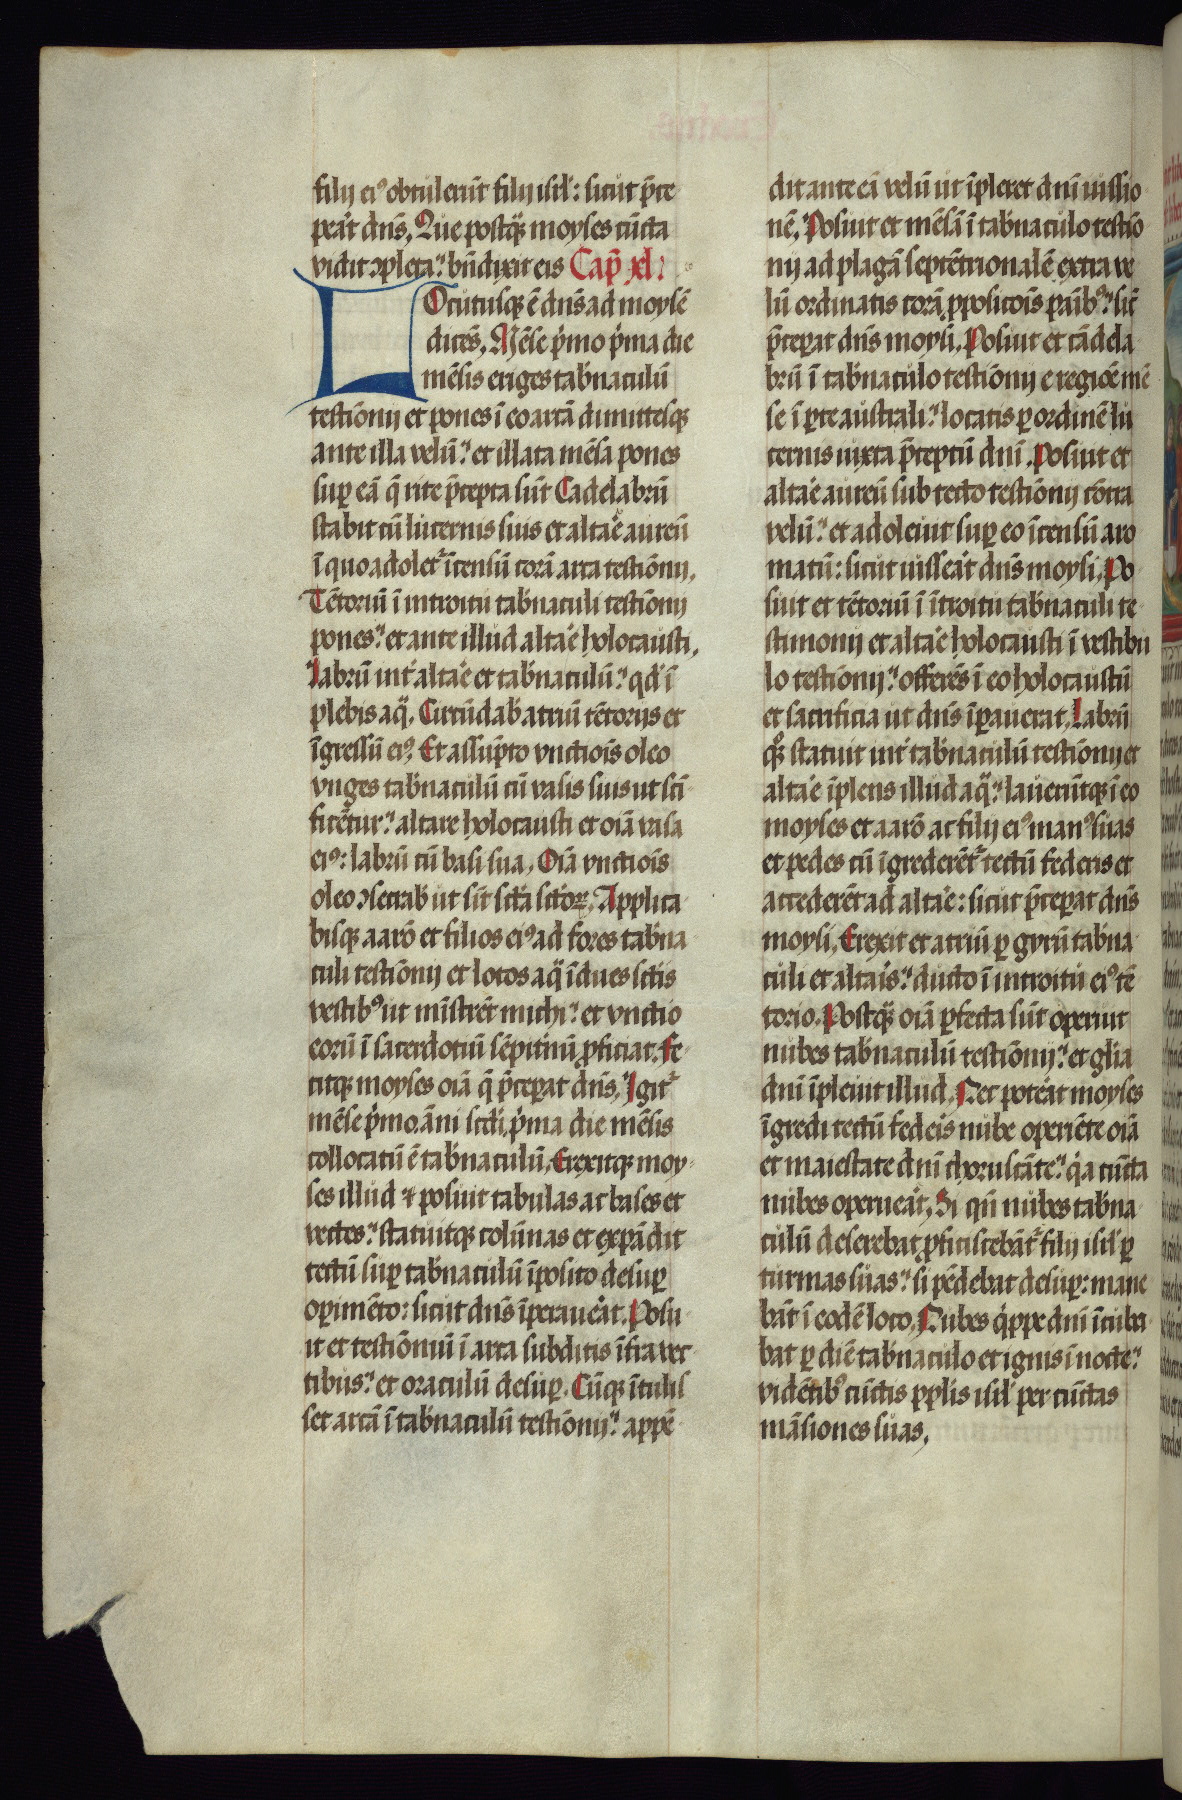 filij ei⁹ obtulerūt filij isrl': sicut p̄ce
perāt dns̄. Que postq̄ moyses cūcta
vidit ↄpleta: bn̄dixit eis Cap̄ xl:
LOcutusq; ē dns̄ ad moysē
dicēs. Mēse p̍mo p̍ma die
mēsis eriges tab̄naculū
testiōnij et pones ī eo arcā dimittesq;
ante illā velū: et illata mēsa pones
suꝑ eā q̄ rite p̄cepta sūt Cādelabrū
stabit cū lucernis suis et altār̄e aureū
ī quo adolet̄ īcensū corā arca testiōnij.
Tētoriū ī introitu tab̄naculi testiōnij
pones: et ante illud altār̄e holocausti.
labrū int̄ altār̄e et tab̄naculū: qd' ī
plebis aq̄. Circūdab̄ atriū tētorijs et
īgressū ei⁹. Et assūpto vnctiōis oleo
vnges tab̄naculū cū vasis suis ut scī
ficētur: altare holocausti et oīa vasa
ei⁹: labrū cū basi sua. Oīa vnctiōis
oleo ↄsecrab̄ ut sīt scā̄ scōꝝ. Applica
bisq; aarō et filios ei⁹ ad fores tab̄na
culi testiōnij et lotos aq̄ īdues scīs
vestib⁹ ut mīstrēt michi: et vnctio
eorū ī sacerdotiū sēpit̄nū ꝓficiat. Fe
citq; moyses oīa q̄ p̄ceꝑat dns̄. Igit̄
mēse p̍mo āni scdi̍, p̍ma die mēsis
collocatū ē tab̄naculū. Erexitq; moy-
ses illud ⁊ posuit tabulas ac bases et
vectes: statuitq; colūnas et expādit
tectū suꝑ tab̄naculū īposito desuꝑ
oꝑimēto: sicut dns̄ īperauerāt. Posu
it et testiōniū ī arca subditis īfra vec
tibus: et oraculū desuꝑ. Cūq; ītulis
set arcā ī tab̄naculū testiōnij: appē
dit ante eā velū ut īpleret dni̅ iussio
nē. Posuit et mēsā ī tab̄naculo testiō
nij ad plagā septētrionalē extra ve
lū ordinatis corā ꝓpositōis panīb⁹: sic̄
p̄ceꝑat dns̄ moysi. Posuit et cādela
brū ī tab̄naculo testiōnij e regiōe mē
se ī ꝑte australi: locatis ꝑ ordinē lu
cernis iuxta p̄ceptū dni̅. Posuit et
altār̄e aureū sub tecto testiōnij cōtra
velū: et adoleuit suꝑ eo īcensū aro
matū: sicut iusserāt dns̄ moysi. Po
suit et tētoriū ī ītroitu tab̄naculi te
stimonij et altār̄e holocausti ī vestibu
lo testiōnij: offerēs ī eo holocaustū
et sacrificia ut dns̄ īꝑauerat. Labrū
qꝫ̄ statuit int̄ tab̄naculū testiōnij et
altār̄e īplens illud aq̄: lauerūtq; ī eo
moyses et aarō ac filij ei⁹ man⁹ suas
et pedes cū īgrederēt̄ tectū federis et
accederēt ad altār̄e: sicut p̄ceꝑat dns̄
moysi. Erexit et atriū ꝑ gyrū tab̄na
culi et altār̄is: ducto ī introitū ei⁹ tē
torio. Postq̄ oīa ꝑfecta sūt operuit
nubes tab̄naculū testiōnij: et glīa
dni̅ īpleuit illud. Nec poterāt moyses
īgredi tectū federīs nube operiēte oīa
et maiestate dni̅ choruscāte: q̍a cūcta
nubes operuerāt. Si qn̄ nubes tab̄na
culū deserebat ꝓficiscebāt̄ filij isrl' ꝑ
turmas suas: si pēdebat desuꝑ: mane
bāt ī eodē loco. Nubes q̍ppe dni̅ īcuba
bat ꝑ diē tab̄naculo et ignis ī nocte:
vidētib⁹ cūctis pp̄lis isrl' per cūctas
māsiones suas.